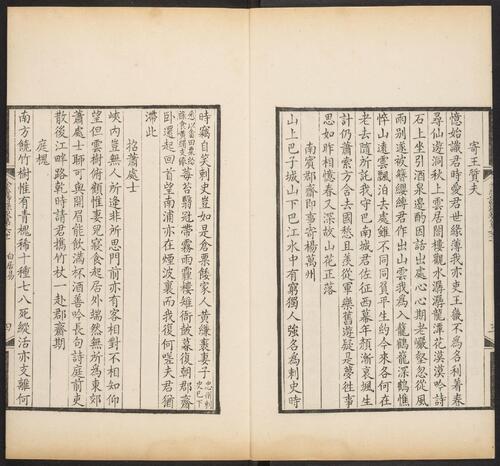 寄王質夫
憶始識君時愛君世緣薄我亦吏王畿不為名利著春
尋仙遊洞秋上雲居閣樓觀水潺潺龍潭花漠漠吟詩
石上坐引酒泉邊酌因話出處心心期老巖壑忽從風
雨別遂被簪纓縛君作出山雲我為入籠鶴籠深鶴憔
悴山遠雲飄泊去處雖不同同負平生約今來各何在
老去隨所託我守巴南城君佐征西幕年顏漸衰颯生
計仍蕭索方含去國愁且羨從軍樂舊遊疑是夢往事
思如昨相憶春又深故山花正落
南賓郡齋即事寄楊萬州
山上巴子城山下巴江水中有窮獨人強名為刺史時
時竊自笑刺史豈如是倉粟餧家人黃縑裹妻子
忠州刺史已下
悉以畬田粟給
祿食黃絹支俸
莓苔翳冠帶霧雨霾樓雉衙鼓暮復朝郡齋
臥還起回首望南浦亦在煙波裏而我復何嗟夫君猶
滯此
招蕭處士
峽內豈無人所逢非所思門前亦有客相對不相知仰
望但雲樹俯顧惟妻兒寢食起居外端然無所為東郊
蕭處士聊可與開眉能飲滿杯酒善吟長句詩庭前吏
散後江畔路乾時請君攜竹杖一赴郡齋期
庭槐
南方饒竹樹惟有青槐稀十種七八死縱活亦支離何
白居易
四